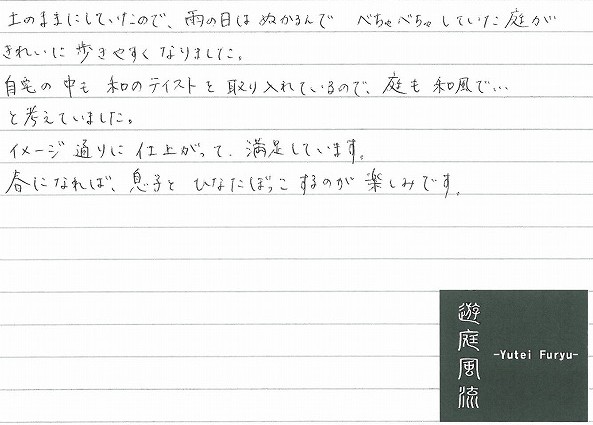 土のままにしていたので、雨の日はぬかるんで べちゃべちゃしていた庭が
きれいに歩きやすくなりました。
自宅の中も和のテイストを取り入れているので、庭も和風で…
と考えていました。
イメージ通りに仕上がって、満足しています。
春になれば、息子とひなたぼっこするのが楽しみです。
遊庭風流
-Yutei Furyu-